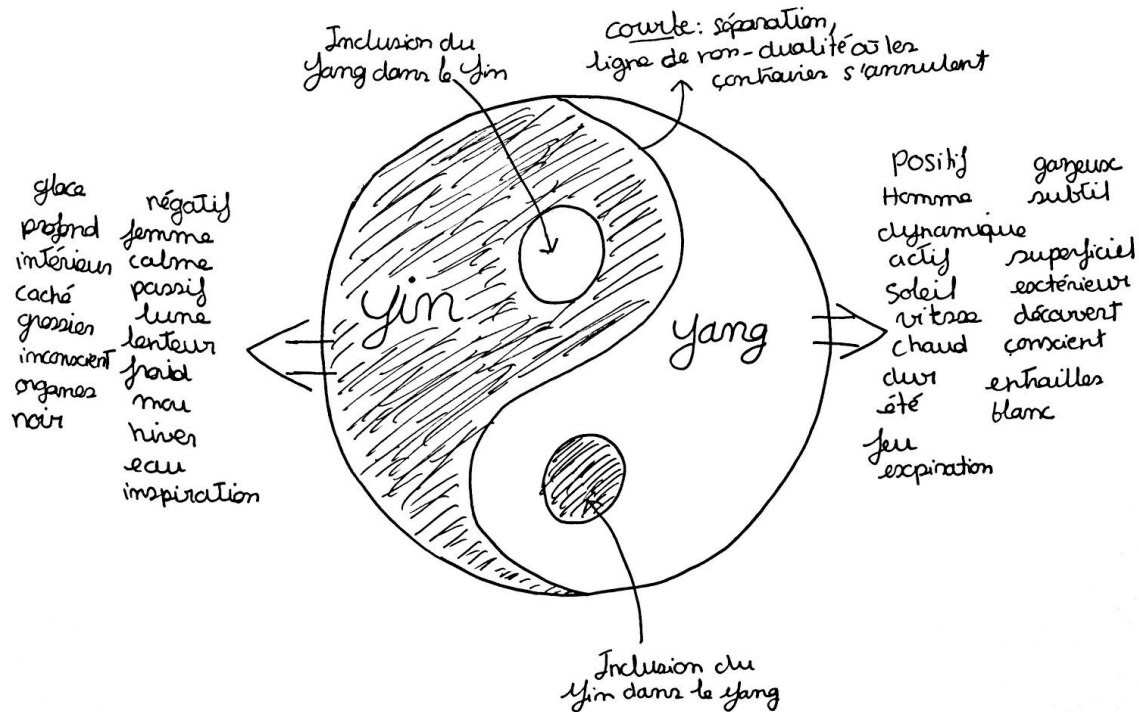 Inclusion du
Yang dans le Yin
courbe: séparation,
ligne de non-dualité où les
contraires s'annulent
glace
profond
intérieur
caché
grossier
inconscient
organes
noir
négatif
femme
calme
passif
lune
lenteur
froid
mou
hiver
eau
inspiration
Yin
Yang
positif
Homme
dynamique
actif
soleil
vitesse
chaud
dur
été
feu
expiration
gazeux
subtil
superficiel
extérieur
découvert
conscient
entrailles
blanc
Inclusion du
Yin dans le Yang